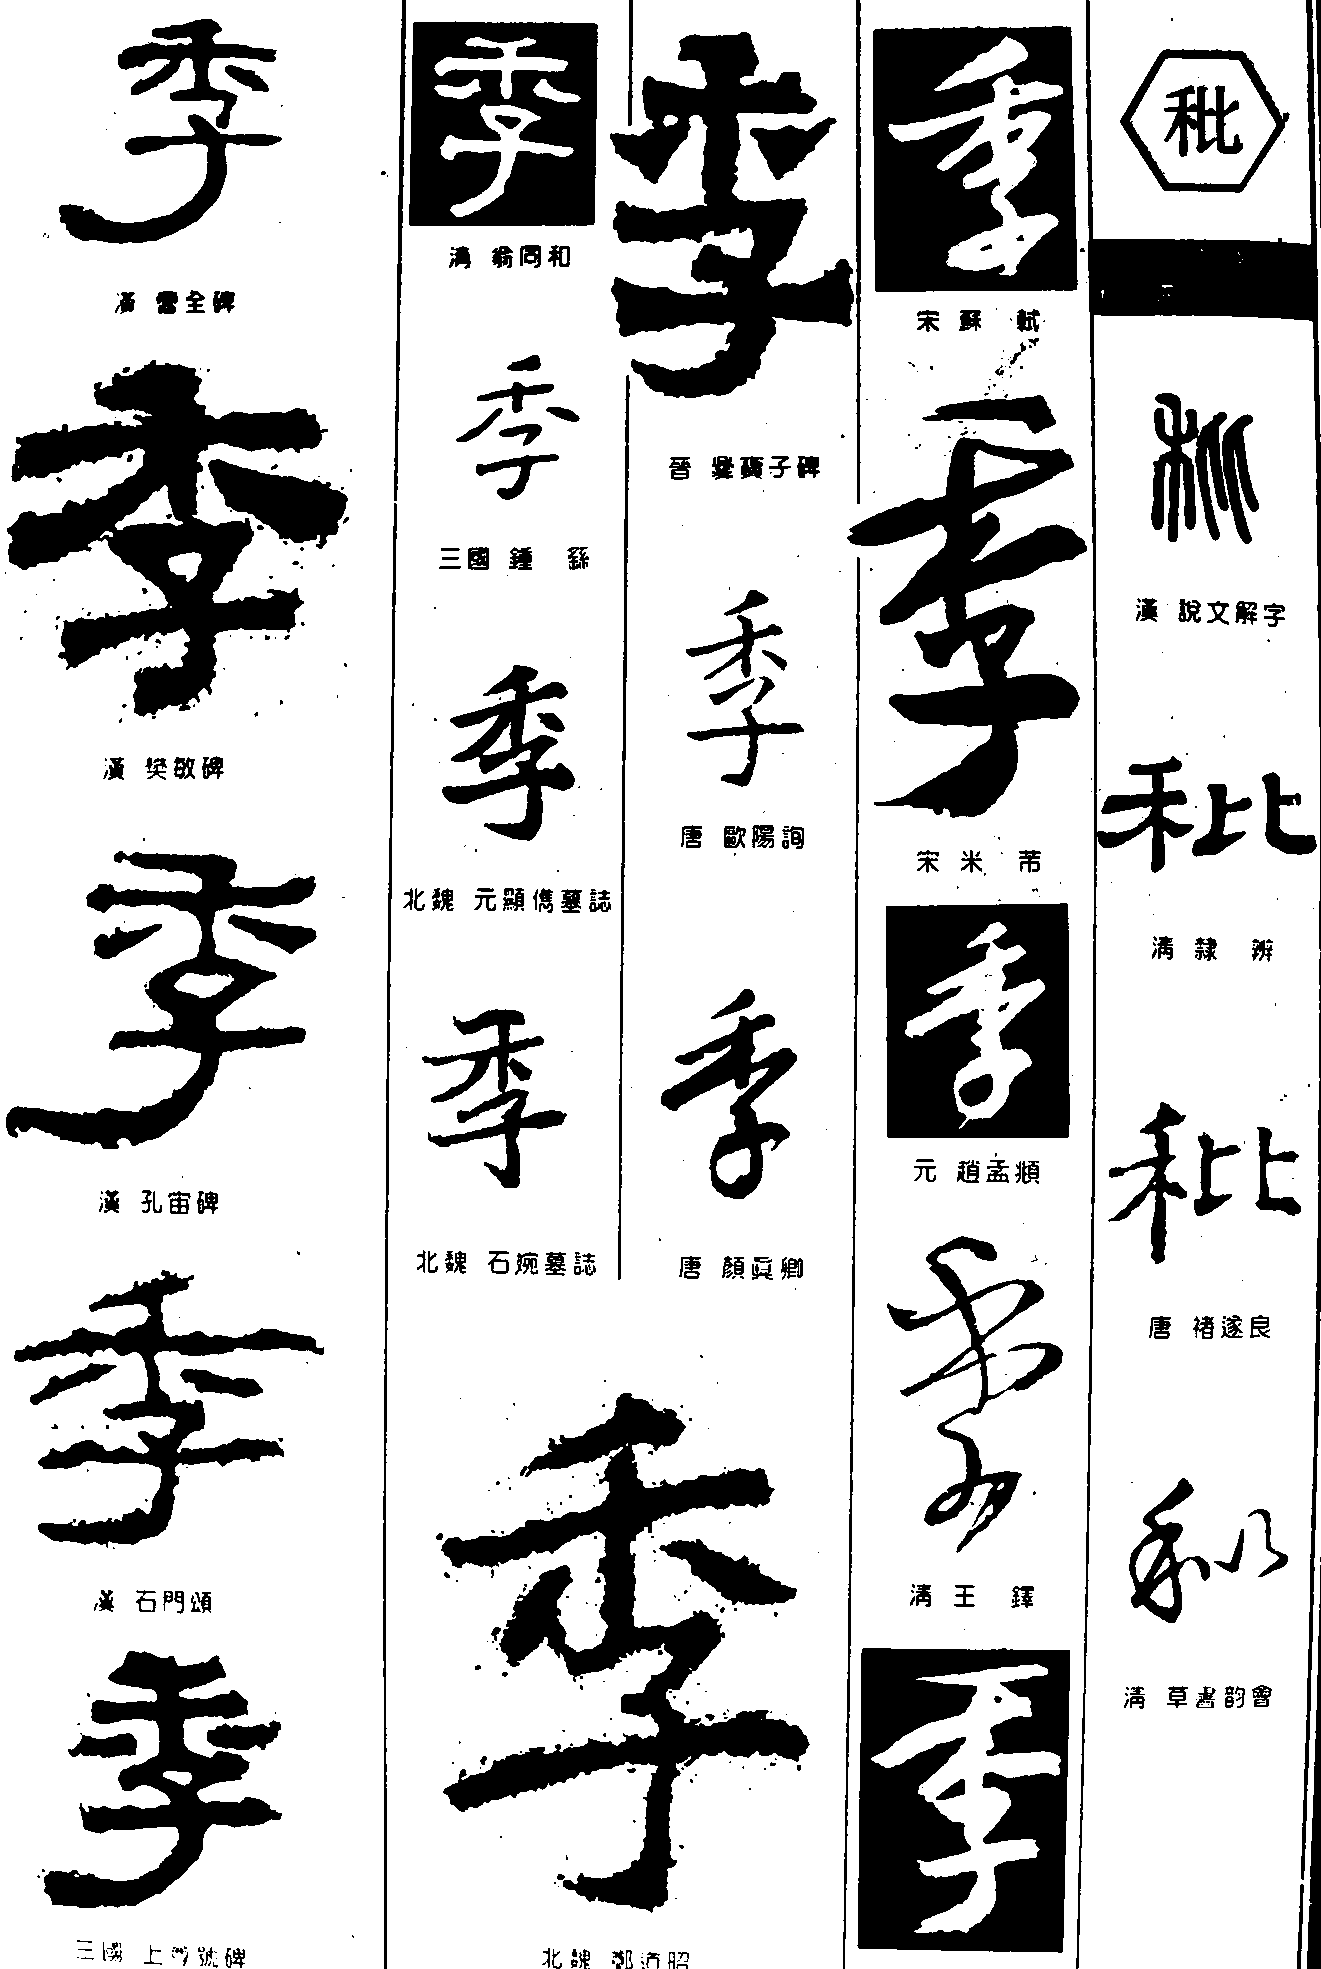 秕
漢 說文解字
秕
清 隸辨
秕
唐 褚遂良
秕
清 草書韵會
季
宋 蘇軾
季
宋 米芾
季
元 趙孟頫
季
清 王鐸
季
季
晉 爨寶子碑
季
唐 歐陽詢
季
唐 顏眞卿
季
清 翁同和
季
三國 鍾繇
季
北魏 元顯儁墓誌
季
北魏 石婉墓誌
季
北魏 鄭道昭
季
漢 曹全碑
季
漢 樊敏碑
季
漢 孔宙碑
季
漢 石門頌
季
三國 上尊號碑